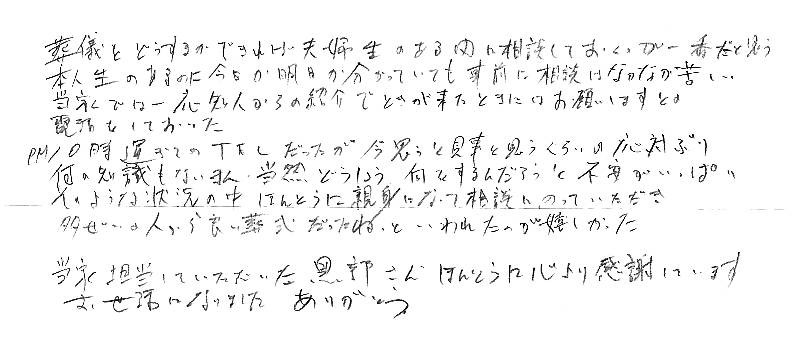 葬儀をどうするかできれば夫婦生のある内に相談しておくのが一番だと思う
本人生のあるのに今日か明日か分かっていても事前に相談はなかなか苦しい
当家では一応知人からの紹介でときが来たときにはお願いしますと
電話をしておいた
PM10時過ぎてのTELだったが今思うと見事と思うくらいの応対ぶり
何の知識もないまま当然どうしよう何をするんだろうと不安がいっぱい
そのような状況の中ほんとうに親身になって相談にのっていただき
多ぜいの人から良い葬式だったねといわれたのが嬉しかった
当家担当していただいた黒部さんほんとうに心より感謝しています
お世話になりましたありがとう